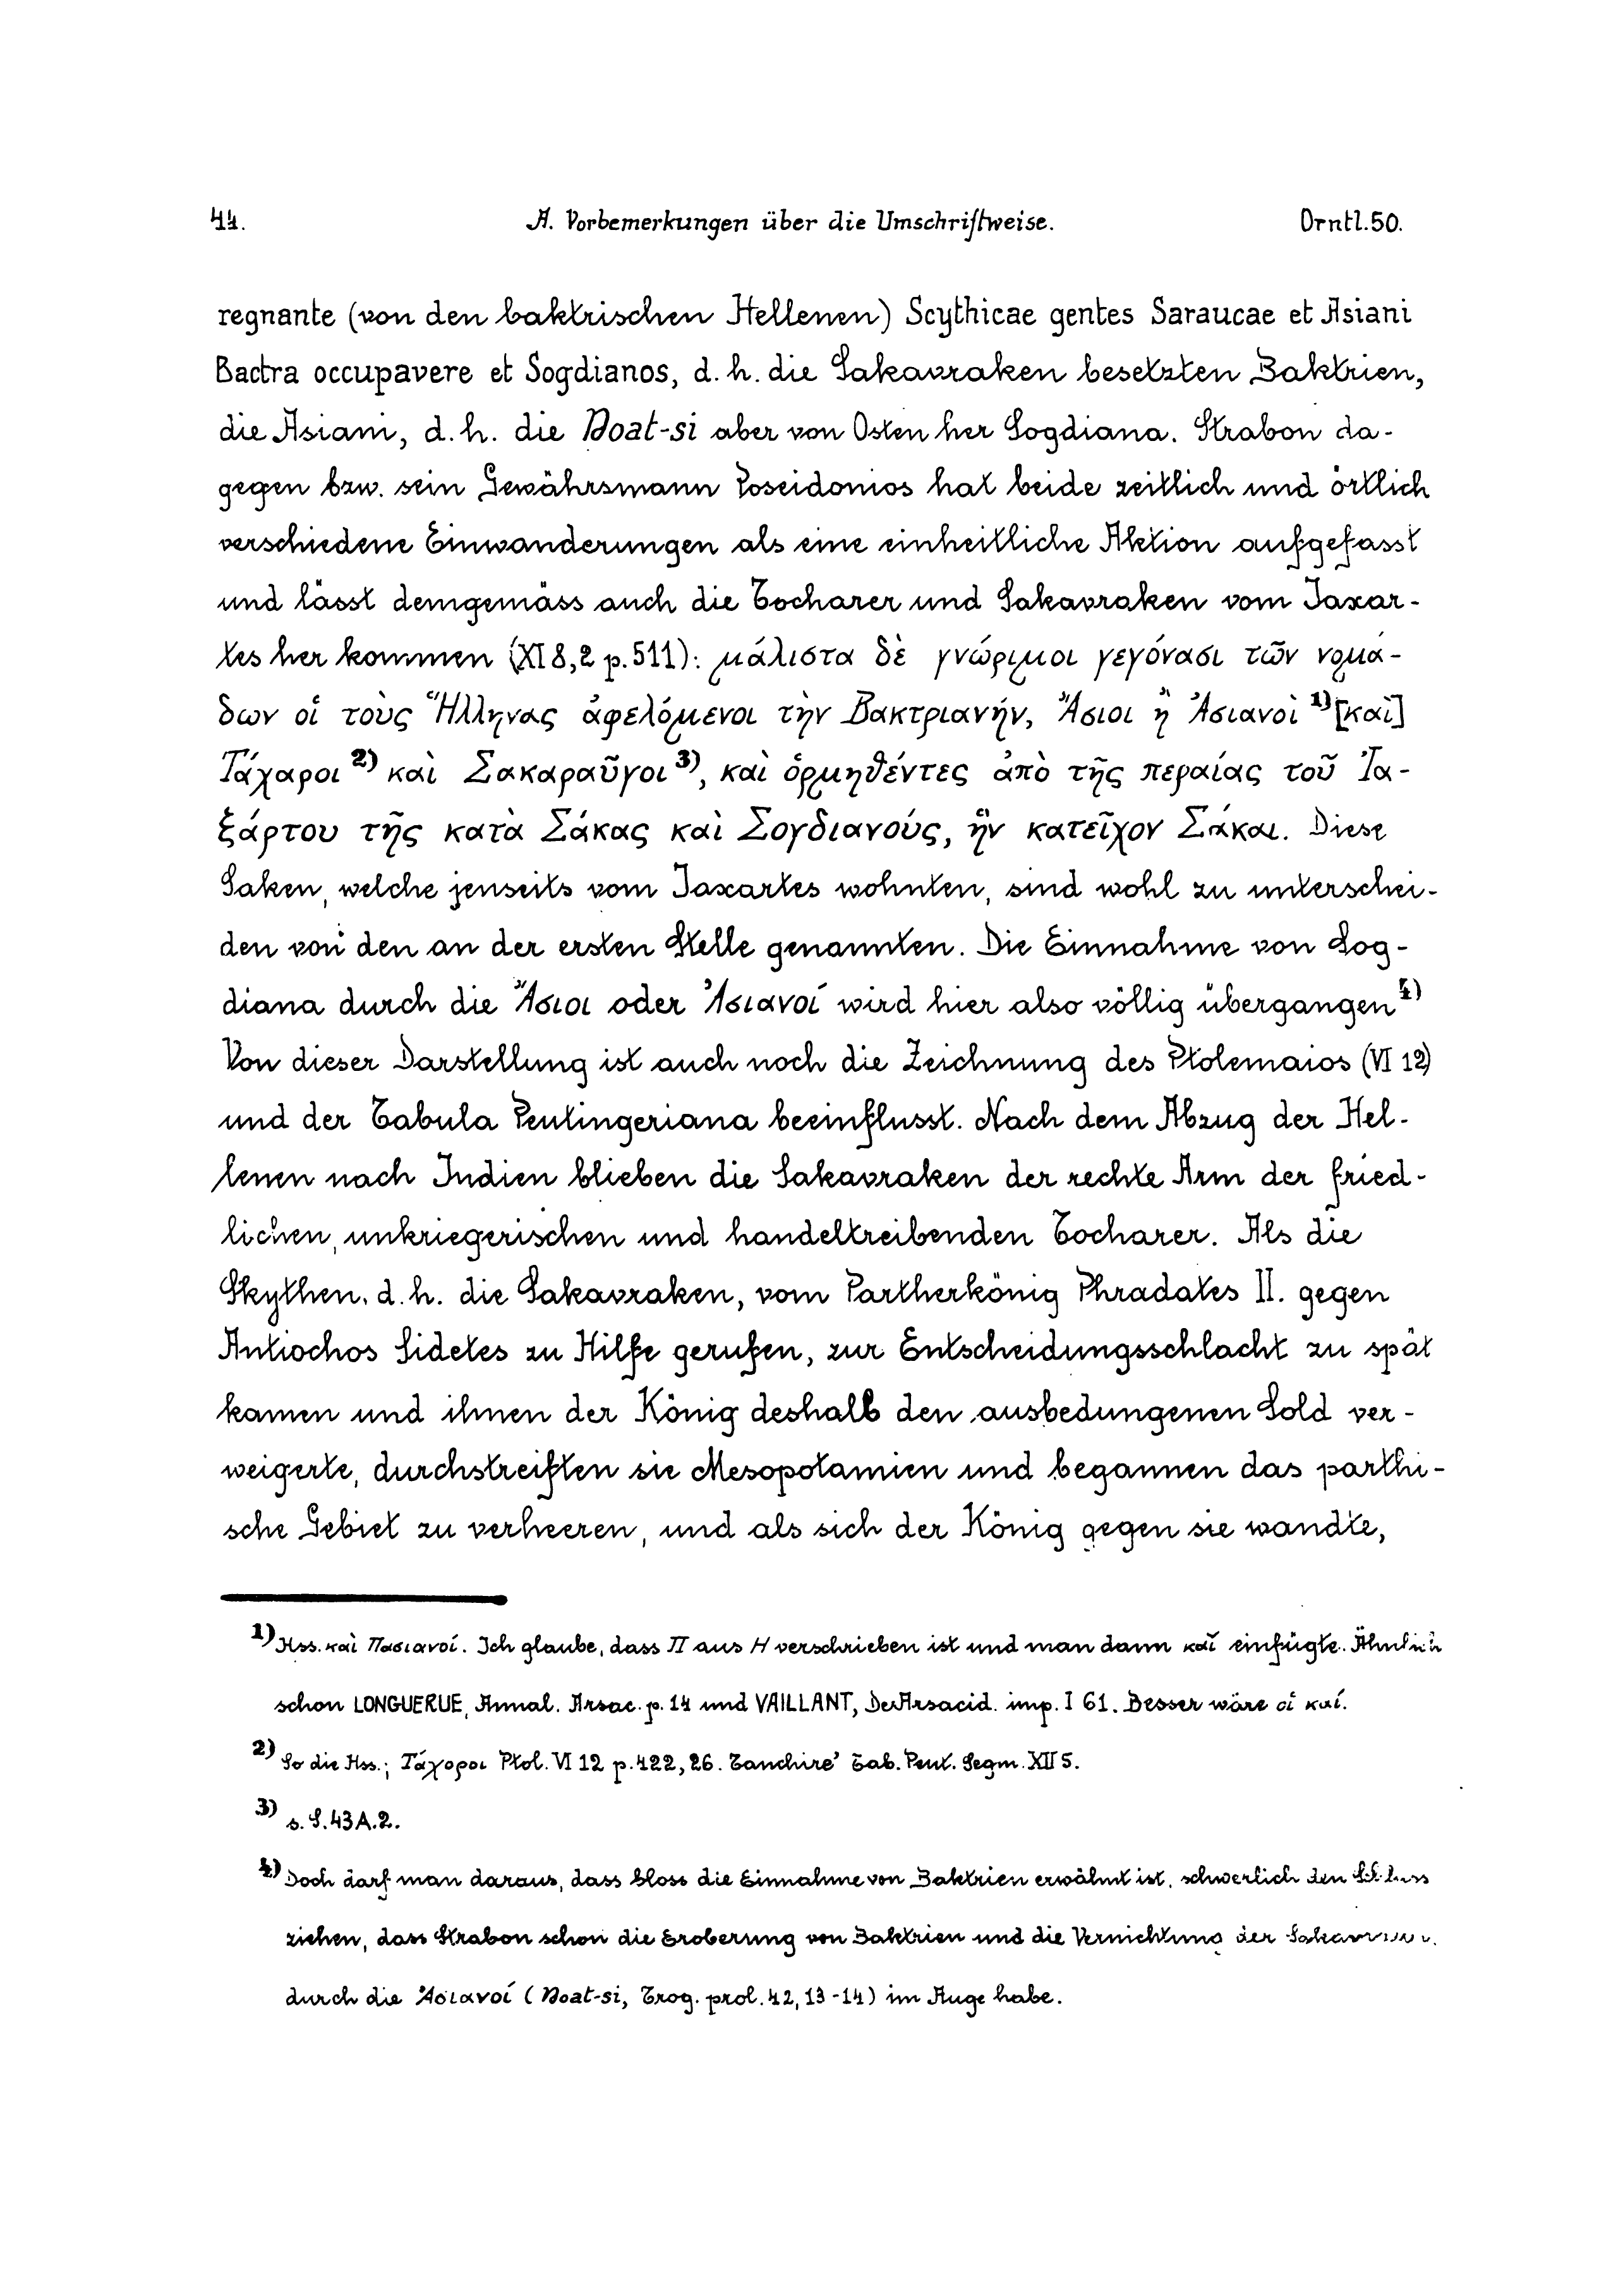 44. A. Vorbemerkungen über die Umschriftweise. Orntl.50.
regnante (von den baktrischen Hellenen) Scythicae gentes Saraucae et Asiani
Bactra occupavere et Sogdianos, d.h. die Sakavraken besetzten Baktrien,
die Asiani, d.h. die Ṇoat-si aber von Osten her Sogdiana. Strabon da-
gegen bzw. sein Gewährsmann Poseidonios hat beide zeitlich und örtlich
verschiedene Einwanderungen als eine einheitliche Aktion aufgefasst
und lässt demgemäss auch die Tocharer und Sakavraken vom Jaxar-
tes her kommen (XI 8,2 p.511): μάλιστα δὲ γνώριμοι γεγόνασι τῶν νομά-
δων οἱ τοὺς Ἥλληνας ἀφελόμενοι τὴν Βακτριανήν, Ἄσιοι ἢ Ἀσιανοὶ 1) [καὶ]
Τάχαροι 2) καὶ Σακαραῦγοι 3), καὶ ὁρμηθέντες ἀπὸ τῆς περαίας τοῦ Ἰα-
ξάρτου τῆς κατὰ Σάκας καὶ Σογδιανούς, ἣν κατεῖχον Σάκαι. Diese
Saken, welche jenseits vom Jaxartes wohnten, sind wohl zu unterschei-
den von den an der ersten Stelle genannten. Die Einnahme von Sog-
diana durch die Ἄσιοι oder Ἀσιανοί wird hier also völlig übergangen 4)
Von dieser Darstellung ist auch noch die Zeichnung des Ptolemaios (VI 12)
und der Tabula Peutingeriana beeinflusst. Nach dem Abzug der Hel-
lenen nach Indien blieben die Sakavraken der rechte Arm der fried-
lichen, unkriegerischen und handeltreibenden Tocharer. Als die
Skythen, d.h. die Sakavraken, vom Partherkönig Phradates II. gegen
Antiochos Sidetes zu Hilfe gerufen, zur Entscheidungsschlacht zu spät
kamen und ihnen der König deshalb den ausbedungenen Sold ver-
weigerte, durchstreiften sie Mesopotamien und begannen das parthi-
sche Gebiet zu verheeren, und als sich der König gegen sie wandte,
1) Hss. καὶ Πασιανοί. Ich glaube, dass Π aus Η verschrieben ist und man dann καὶ einfügte. Ähnlich
schon LONGUERUE, Annal. Arsac. p. 14 und VAILLANT, De Arsacid. imp. I 61. Besser wäre οἱ καί.
2) So die Hss.; Τάγοροι Ptol. VI 12 p.422,26. Tanchire' Tab. Peut. Segm. XII 5.
3) s. S.43 A.2.
4) Doch darf man daraus, dass bloss die Einnahme von Baktrien erwähnt ist, schwerlich den Schluss
ziehen, dass Strabon schon die Eroberung von Baktrien und die Vernichtung der
durch die Ἀσιανοί (Ṇoat-si, Trog. prol. 42, 13-14) im Auge habe.